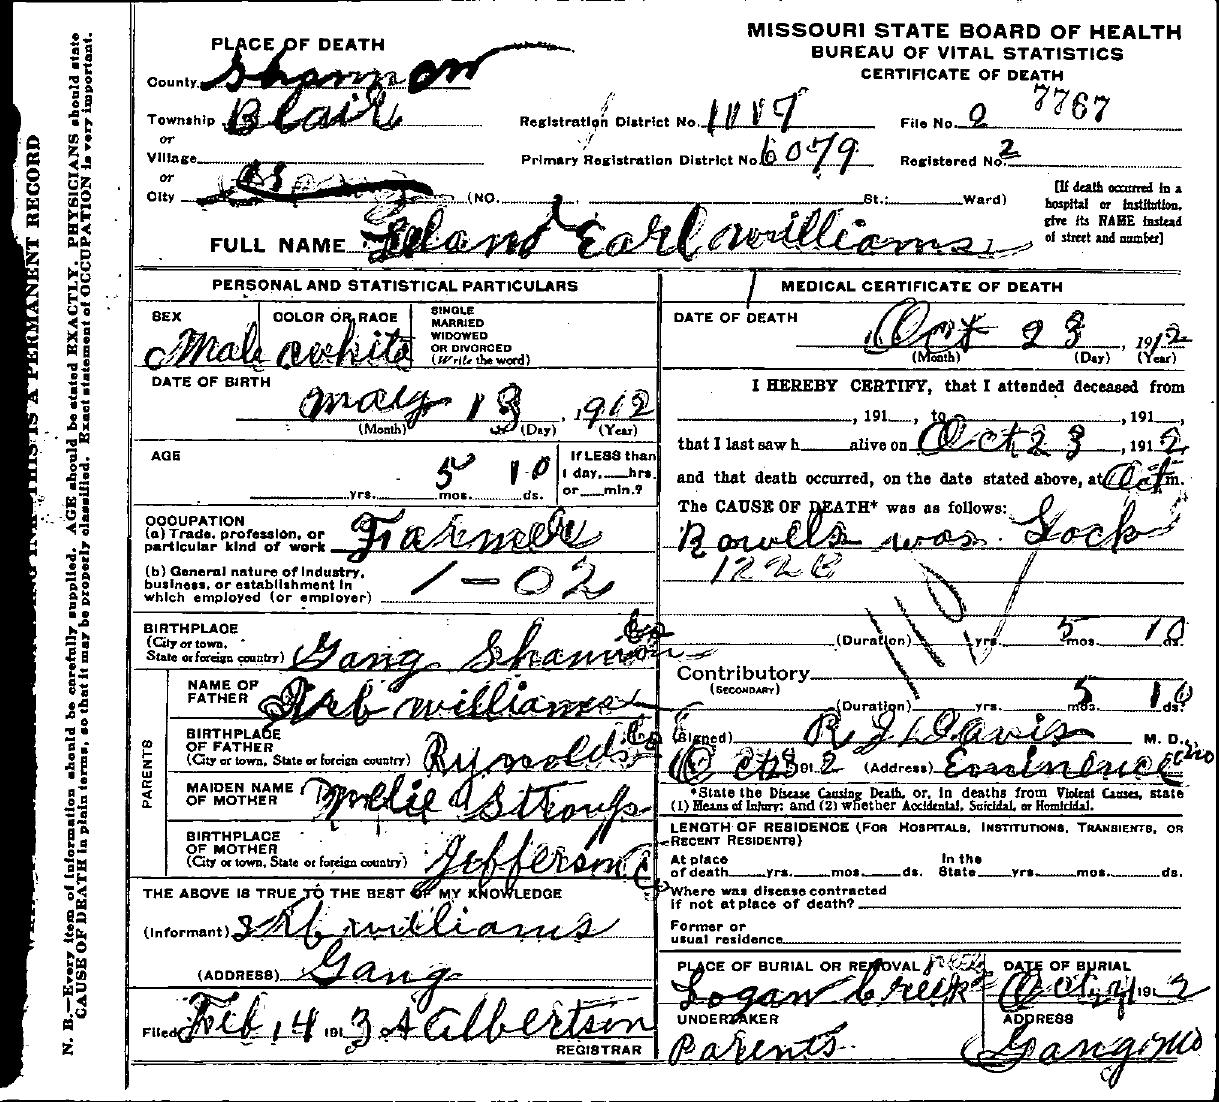 MISSOURI STATE BOARD OF HEALTH
BUREAU OF VITAL STATISTICS
CERTIFICATE OF DEATH
PLACE OF DEATH
County Shannon
Township Blair
or
Village
or
City (NO. St.; Ward)
Registration District No.
File No. 2 7767
Primary Registration District No. 6079
Registered No. 2
[If death occurred in a
hospital or institution,
give its NAME instead
of street and number]
FULL NAME Leland Earl Williams
PERSONAL AND STATISTICAL PARTICULARS
SEX
Male
COLOR OR RACE
white
SINGLE
MARRIED
WIDOWED
OR DIVORCED
(Write the word)
DATE OF BIRTH
May 13, 1912
(Month) (Day) (Year)
AGE
5 10
yrs. mos. ds.
If LESS than
1 day, hrs.
or min.?
OCCUPATION
(a) Trade, profession, or
particular kind of work Farmer
(b) General nature of industry,
business, or establishment in
which employed (or employer) 1-02
BIRTHPLACE
(City or town,
State or foreign country) Gang Shannon Co
PARENTS
NAME OF
FATHER williams
BIRTHPLACE
OF FATHER
(City or town, State or foreign country) Rynolds Co
MAIDEN NAME
OF MOTHER Stroup
BIRTHPLACE
OF MOTHER
(City or town, State or foreign country) Jefferson Co
THE ABOVE IS TRUE TO THE BEST OF MY KNOWLEDGE
(Informant) williams
(ADDRESS) Gang
Filed Feb 14 1913 A Albertson
REGISTRAR
MEDICAL CERTIFICATE OF DEATH
DATE OF DEATH
Oct 23, 1912
(Month) (Day) (Year)
I HEREBY CERTIFY, that I attended deceased from
, 191 , to , 191 ,
that I last saw h alive on Oct 23, 1912
and that death occurred, on the date stated above, at m.
The CAUSE OF DEATH* was as follows:
Bowells was Lock
122B
(Duration) yrs. 5 mos. 10 ds.
Contributory
(SECONDARY)
(Duration) yrs. 5 mos. 10 ds.
(Signed) R J Davis M. D.
Oct 23 1912 (Address) Eminence Mo
*State the Disease Causing Death, or, in deaths from Violent Causes, state
(1) Means of Injury; and (2) whether Accidental, Suicidal, or Homicidal.
LENGTH OF RESIDENCE (FOR HOSPITALS, INSTITUTIONS, TRANSIENTS, OR
RECENT RESIDENTS)
At place
of death yrs. mos. ds.
In the
State yrs. mos. ds.
Where was disease contracted
if not at place of death?
Former or
usual residence
PLACE OF BURIAL OR REMOVAL
Logan Creek
DATE OF BURIAL
Oct 24 1912
UNDERTAKER
Parents
ADDRESS
Gang Mo
THIS IS A PERMANENT RECORD
N. B.—Every item of information should be carefully supplied. AGE should be stated EXACTLY. PHYSICIANS should state
CAUSE OF DEATH in plain terms, so that it may be properly classified. Exact statement of OCCUPATION is very important.